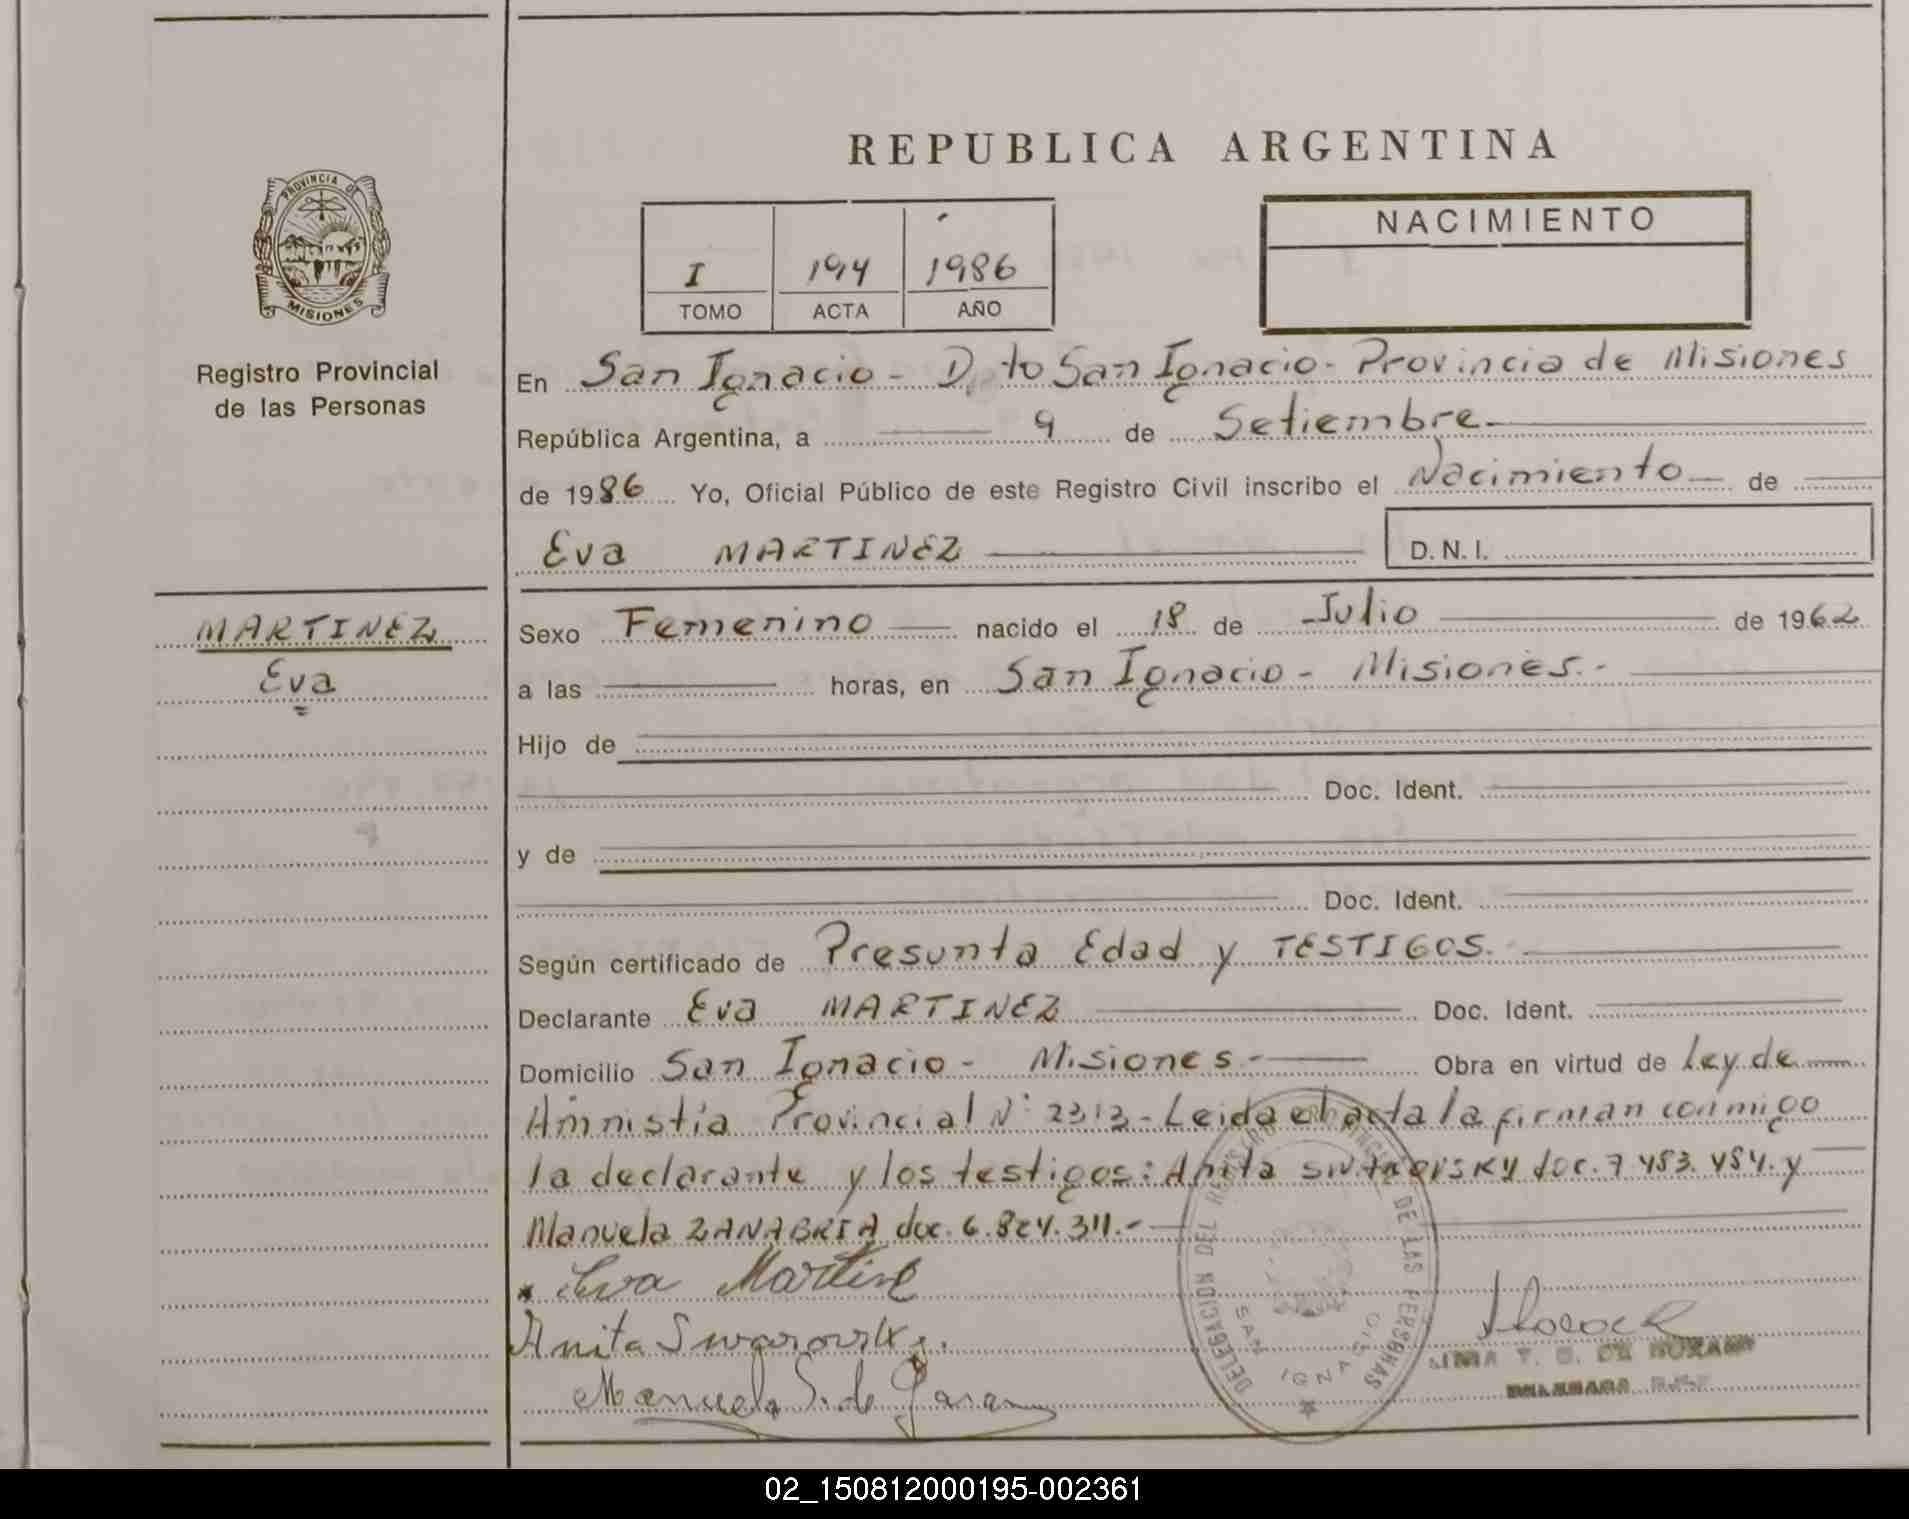 REPUBLICA ARGENTINA
PROVINCIA DE
MISIONES
Registro Provincial
de las Personas
NACIMIENTO
I 194 1986
TOMO ACTA AÑO
En San Ignacio - D.to San Ignacio - Provincia de Misiones
República Argentina, a 9 de Setiembre
de 1986 Yo, Oficial Público de este Registro Civil inscribo el Nacimiento de
Eva MARTINEZ D. N. I.
MARTINEZ
Eva
Sexo Femenino nacido el 18 de Julio de 1962
a las horas, en San Ignacio - Misiones.-
Hijo de
Doc. Ident.
y de
Doc. Ident.
Según certificado de Presunta Edad y TESTIGOS.
Declarante Eva MARTINEZ Doc. Ident.
Domicilio San Ignacio - Misiones.- Obra en virtud de Ley de
Amnistía Provincial N° 2313 - Leida el acta la firman conmigo
la declarante y los testigos: Anita doc. 7.453.454. y
Manuela ZANABRIA doc. 6.824.311.-
Eva Martine
Anita Swarovsky.
Manuela S. de
DELEGACION DEL REGISTRO PROVINCIAL DE LAS PERSONAS
SAN IGNACIO
02_150812000195-002361